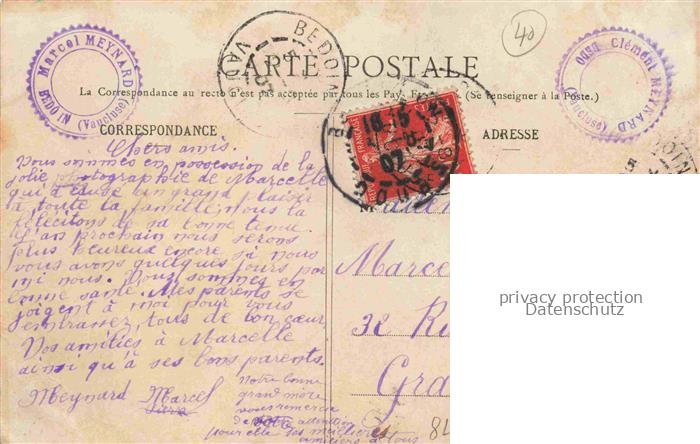 Marcel MEYNARD
BEDOIN (Vaucluse)
BEDOIN
40
Clément MEYNARD
CARTE POSTALE
La Correspondance au recto n'est pas acceptée par tous les Pays (Se renseigner à la Poste.)
CORRESPONDANCE
ADRESSE
REPUBLIQUE FRANÇAISE
Chers amis.
Nous sommes en possession de la
jolie photographie de Marcelle
qui a causé un grand plaisir
à toute la famille, nous la
félicitons de sa bonne tenue.
L'an prochain nous serons
plus heureux encore si nous
vous avons quelques jours par
mi nous. Nous sommes en
bonne santé. Mes parents se
joignent à moi pour vous
embrasser, tous de bon cœur,
Vos amitiés à Marcelle
ainsi qu'à ses bons parents.
Meynard Marcel
Notre bonne
grand mère
vous remercie
de votre attention
pour elle ses meilleures
amitiés à tous
Marce
32 Ru
Gra
84
privacy protection
Datenschutz